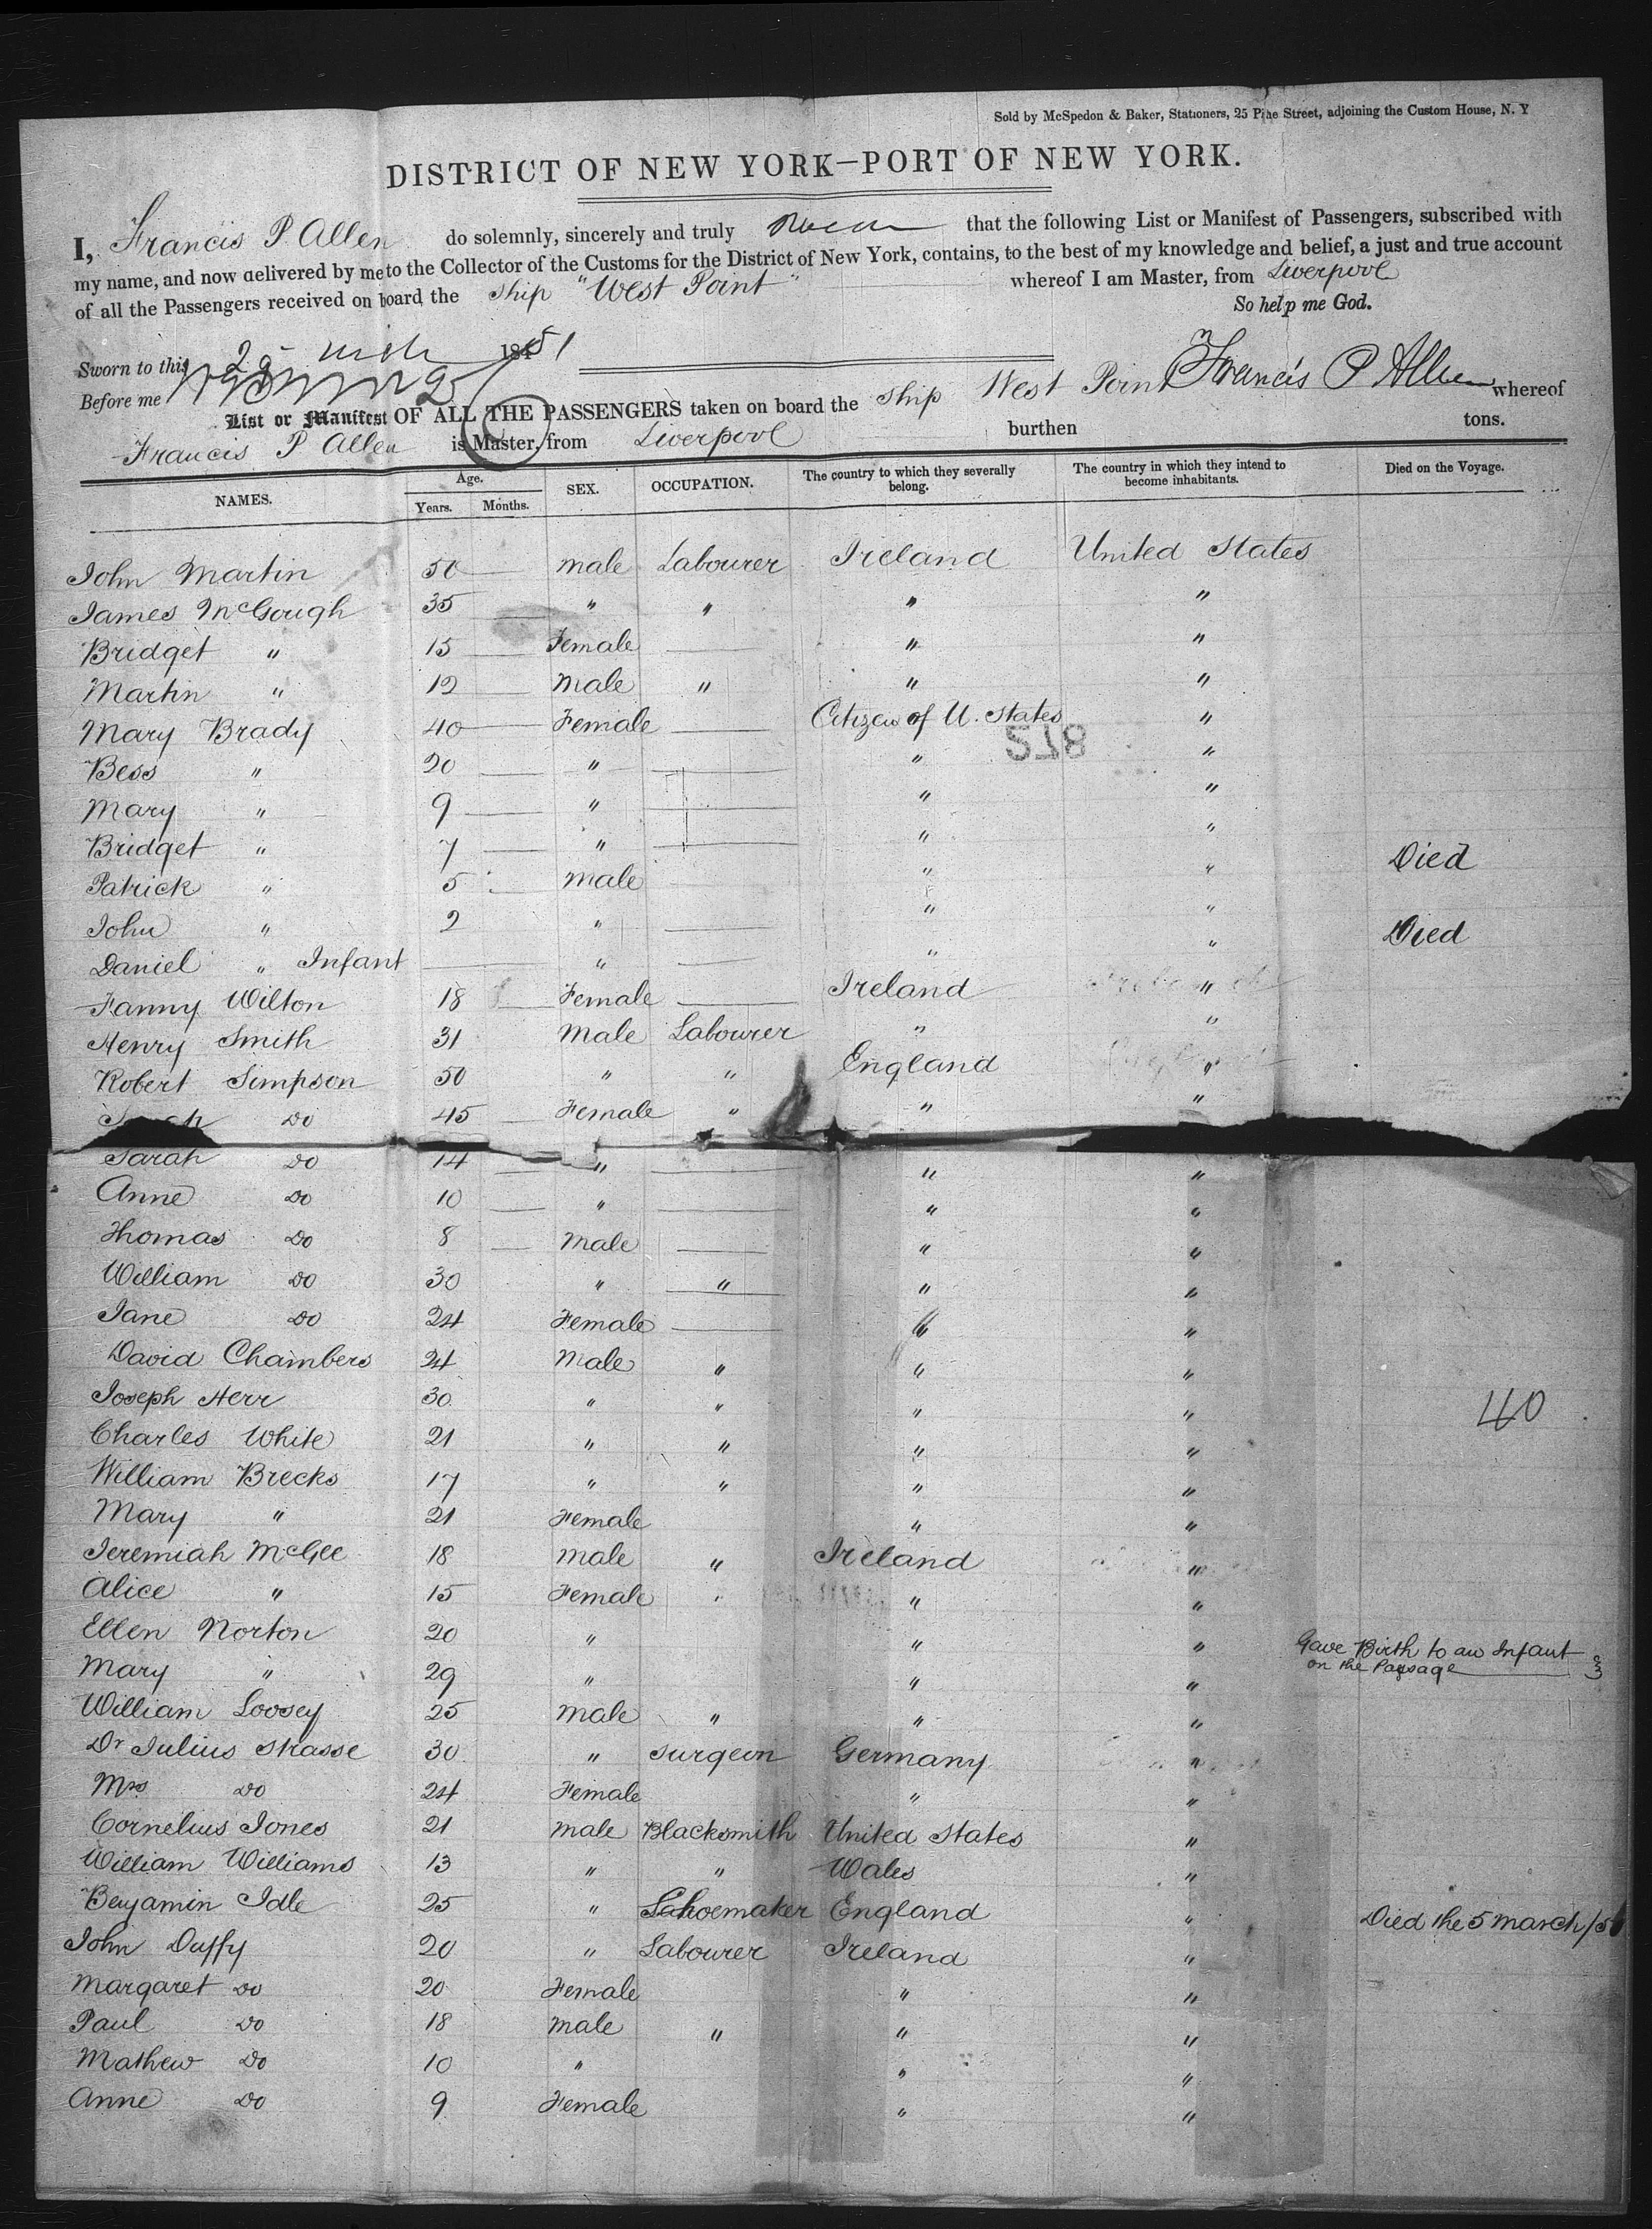 Sold by McSpedon & Baker, Stationers, 25 Pine Street, adjoining the Custom House, N. Y
DISTRICT OF NEW YORK—PORT OF NEW YORK.
I, Francis P. Allen do solemnly, sincerely and truly that the following List or Manifest of Passengers, subscribed with
my name, and now delivered by me to the Collector of the Customs for the District of New York, contains, to the best of my knowledge and belief, a just and true account
of all the Passengers received on board the Ship "West Point" whereof I am Master, from Liverpool
So help me God.
Sworn to this 1851
Before me Francis P Allen
List or Manifest OF ALL THE PASSENGERS taken on board the Ship West Point whereof
Francis P Allen is Master, from Liverpool burthen tons.
NAMES. Age. Years. Months. SEX. OCCUPATION. The country to which they severally belong. The country in which they intend to become inhabitants. Died on the Voyage.
John Martin 50 — male Labourer Ireland United States
James McGough 35 " " " "
Bridget " 15 — Female — " "
Martin " 12 — Male " " "
Mary Brady 40 — Female — Citizen of U. States "
872
Bess " 20 — " — " "
Mary " 9 — " — " "
Bridget " 7 — " — " " Died
Patrick " 5 — male — " "
John " 2 " — " " Died
Daniel " Infant — " — " "
Fanny Wilton 18 — Female — Ireland "
Henry Smith 31 Male Labourer " "
Robert Simpson 50 " " England "
Do 45 — Female " " "
Sarah Do 14 — " — " "
Anne Do 10 — " — " "
Thomas Do 8 — Male — " "
William Do 30 " " " "
Jane Do 24 Female — " "
David Chambers 24 Male " " "
Joseph Herr 30 " " " "
40
Charles White 21 " " " "
William Brecks 17 " " " "
Mary " 21 Female " "
Jeremiah McGee 18 male " Ireland "
Alice " 15 Female " " "
Ellen Norton 20 " " " Gave Birth to an Infant
on the Passage
Mary " 29 " " "
William Loosey 25 Male " " "
Dr Julius Strasse 30 " Surgeon Germany "
Mrs Do 24 Female " "
Cornelius Jones 21 male Blacksmith United States "
William Williams 13 " " Wales "
Benjamin Idle 25 " Shoemaker England " Died the 5 March/51
John Duffy 20 " Labourer Ireland "
Margaret Do 20 Female " "
Paul Do 18 Male " " "
Mathew Do 10 " " "
Anne Do 9 Female " "